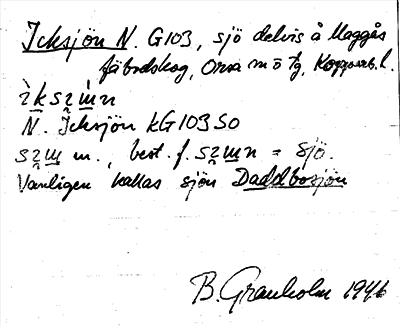 Icksjön N. G103, sjö delvis å Maggås
fäbodskog, Orsa sn o tg, Kopparb. l.
N. Icksjön kG103 SO
m., best. f. = sjö.
Vanligen kallas sjön Daddbosjön
B. Granholm 1946